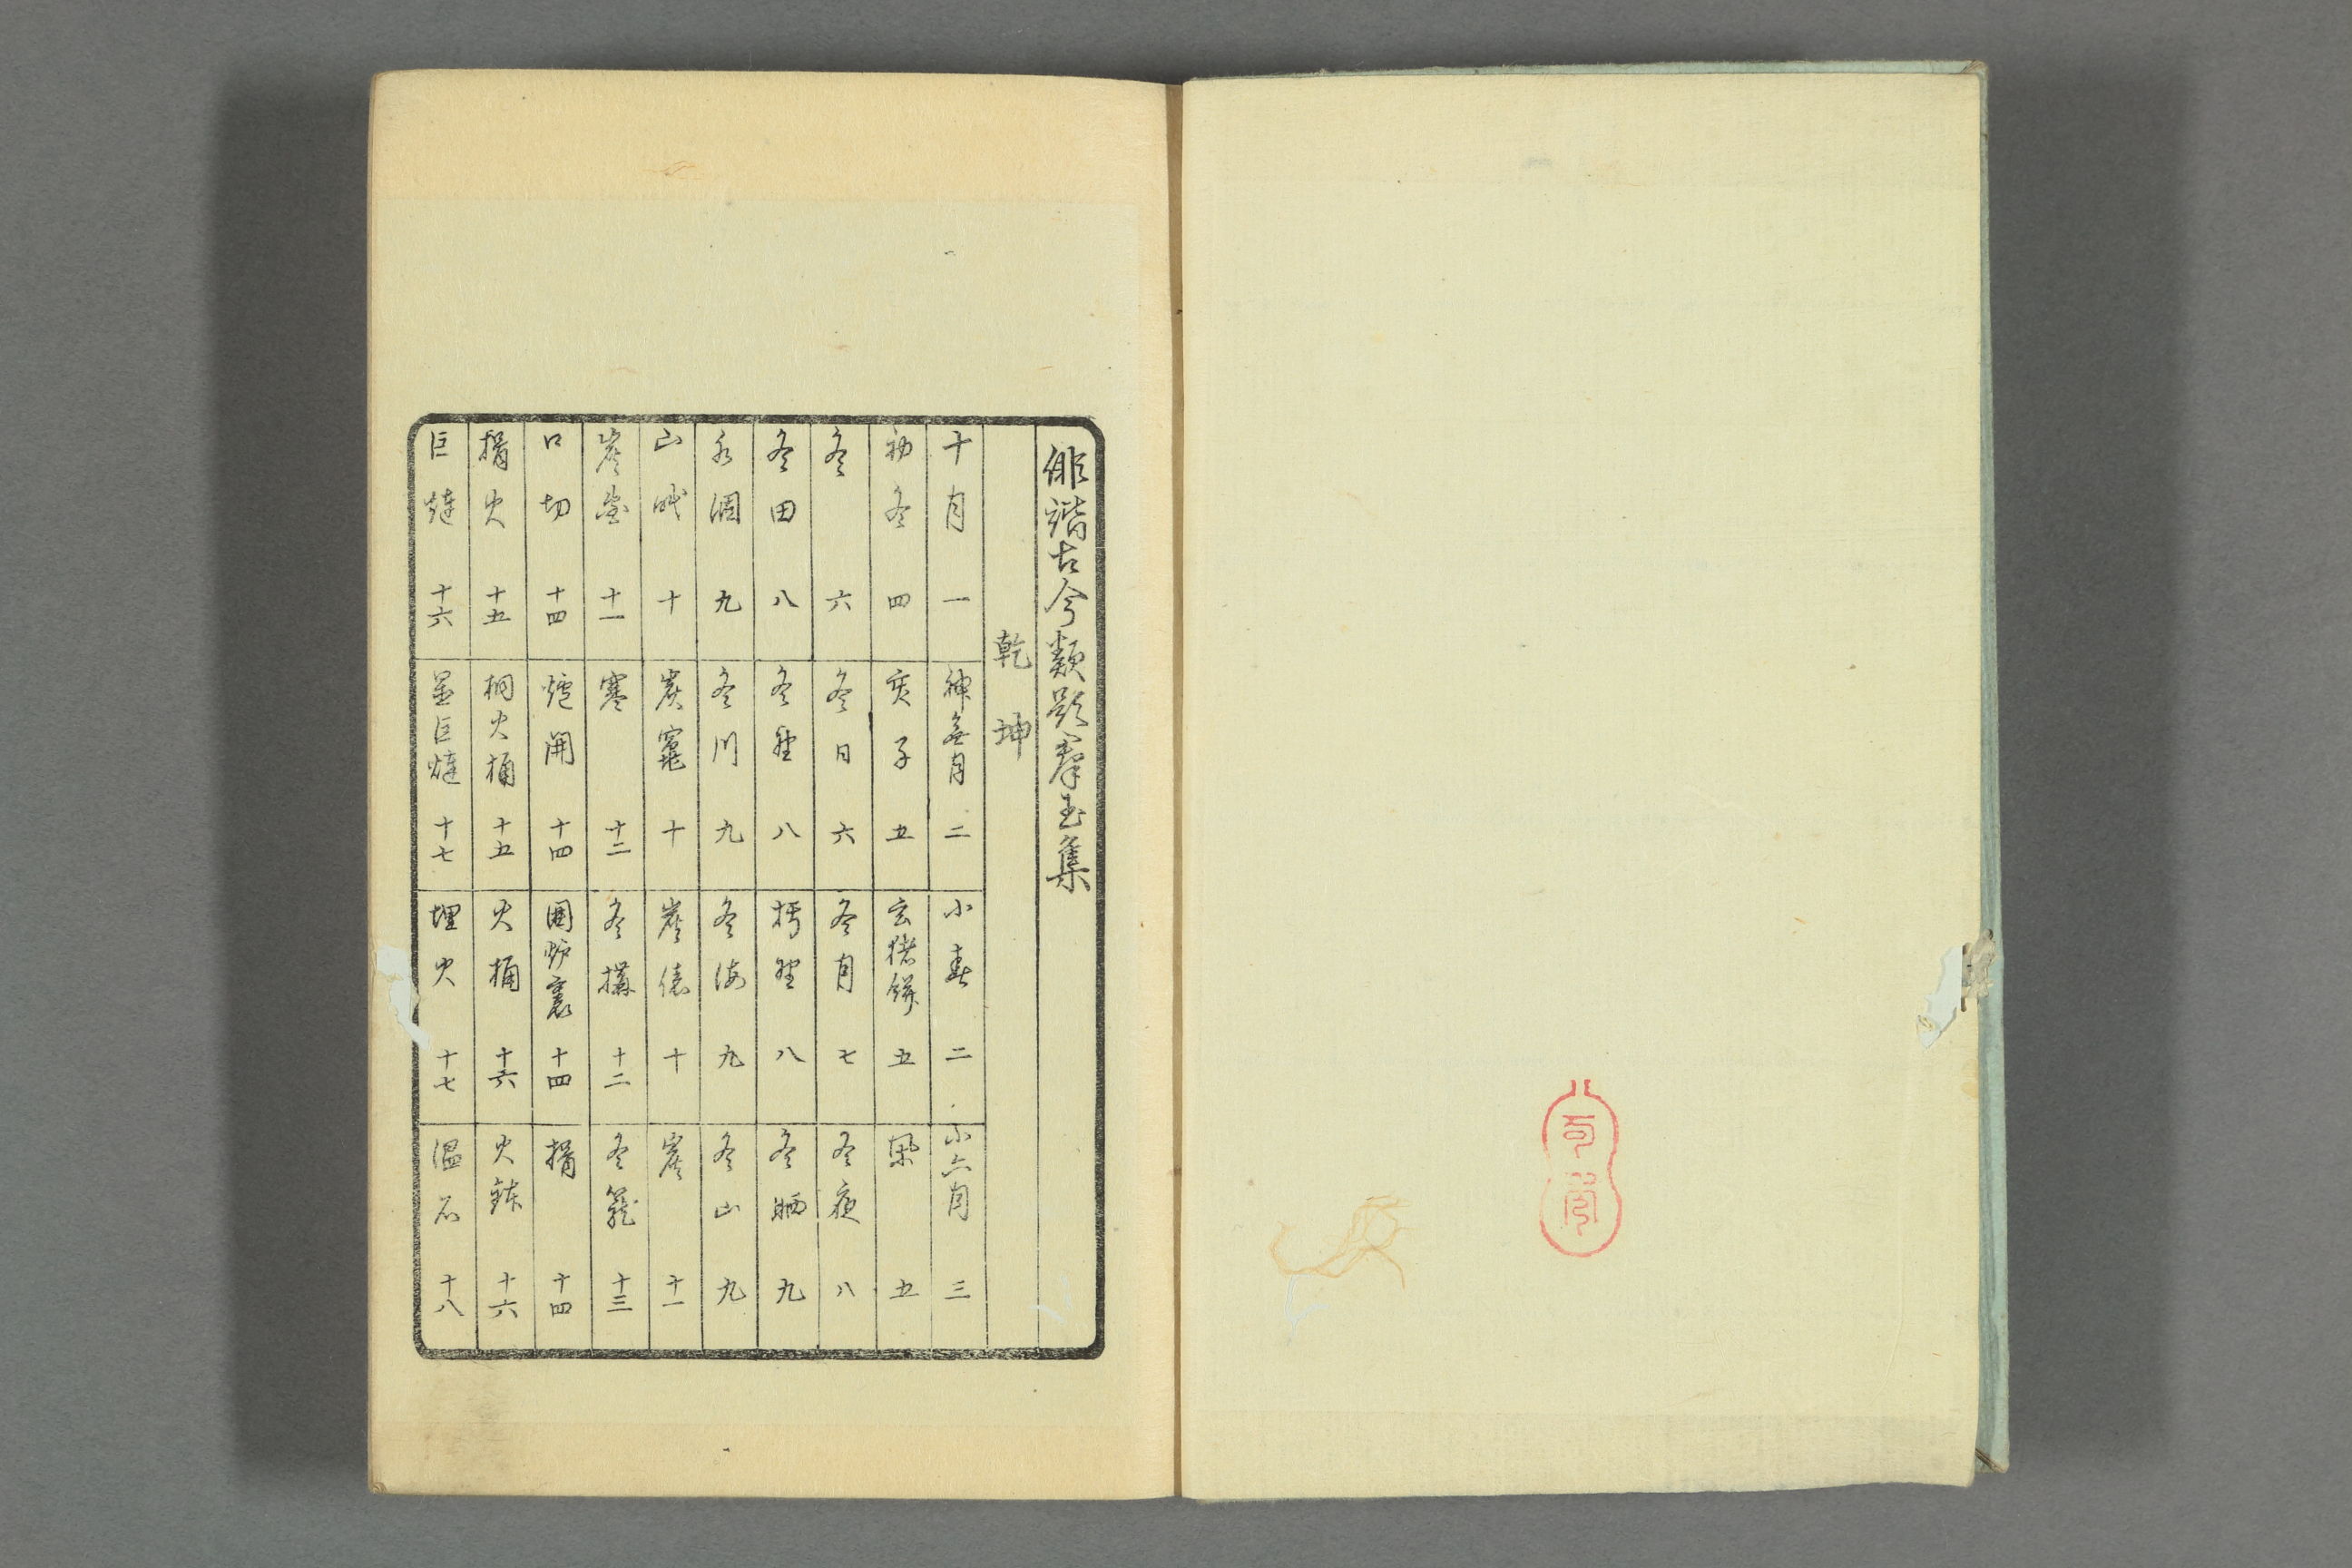 俳諧古今類題羣玉集
乾坤
十月 一 神無月 二 小春 二 小六月 三
初冬 四 亥子 五 玄猪餅 五 凩 五
冬 六 冬日 六 冬月 七 冬夜 八
冬田 八 冬野 八 枯野 八 冬晒 九
水涸 九 冬川 九 冬海 九 冬山 九
山眠 十 炭竈 十 炭俵 十 炭 十一
炭 十一 寒 十二 冬構 十二 冬籠 十三
口切 十四 爐開 十四 囲炉裏 十四 榾 十四
榾火 十五 桐火桶 十五 火桶 十六 火鉢 十六
巨燵 十六 置巨燵 十七 埋火 十七 温石 十八